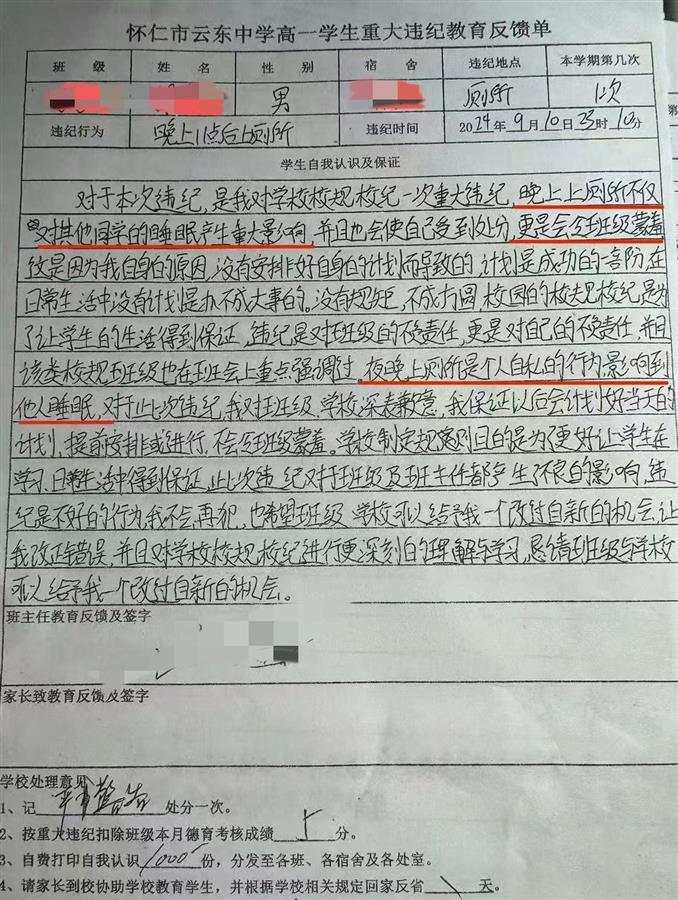 怀仁市云东中学高一学生重大违纪教育反馈单
班 级 姓 名 性 别 宿 舍 违纪地点 本学期第几次
男 厕所 1次
违纪行为 晚上11点后上厕所 违纪时间 2024年9月10日23时10分
学生自我认识及保证
对于本次违纪,是我对学校校规校纪一次重大违纪,晚上上厕所不仅
对其他同学的睡眠产生重大影响,并且也会使自己受到处分,更是会令班级蒙羞
这是因为我自身的原因,没有安排好自身的计划而导致的,计划是成功的一部阶,在
日常生活中没有计划是办不成大事的。没有规矩,不成方圆,校园的校规校纪,是为
了让学生的生活得到保证,违纪是对班级的不负责任,更是对自己的不负责任,并且
该类校规班级也在班会上重点强调过,夜晚上厕所是个人自私的行为,影响到
他人睡眠,对于此次违纪,我对班级、学校深表歉意,我保证以后会计划好当天的
计划,提前安排或进行,不会令班级蒙羞。学校制定规则目的是为了更好让学生在
学习、日常生活中得到保证,此次违纪对于班级及班主任都产生了不良的影响,违
纪是不好的行为,我不会再犯,也希望班级、学校可以给予我一个改过自新的机会,让
我改正错误,并且对学校校规校纪进行更深刻的理解与学习,恳请班级与学校
可以给予我一个改过自新的机会。
班主任教育反馈及签字
家长致教育反馈及签字
学校处理意见
1、记 严重警告 处分一次。
2、按重大违纪扣除班级本月德育考核成绩 分。
3、自费打印自我认识 1000 份,分发至各班、各宿舍及各处室。
4、请家长到校协助学校教育学生,并根据学校相关规定回家反省 天。